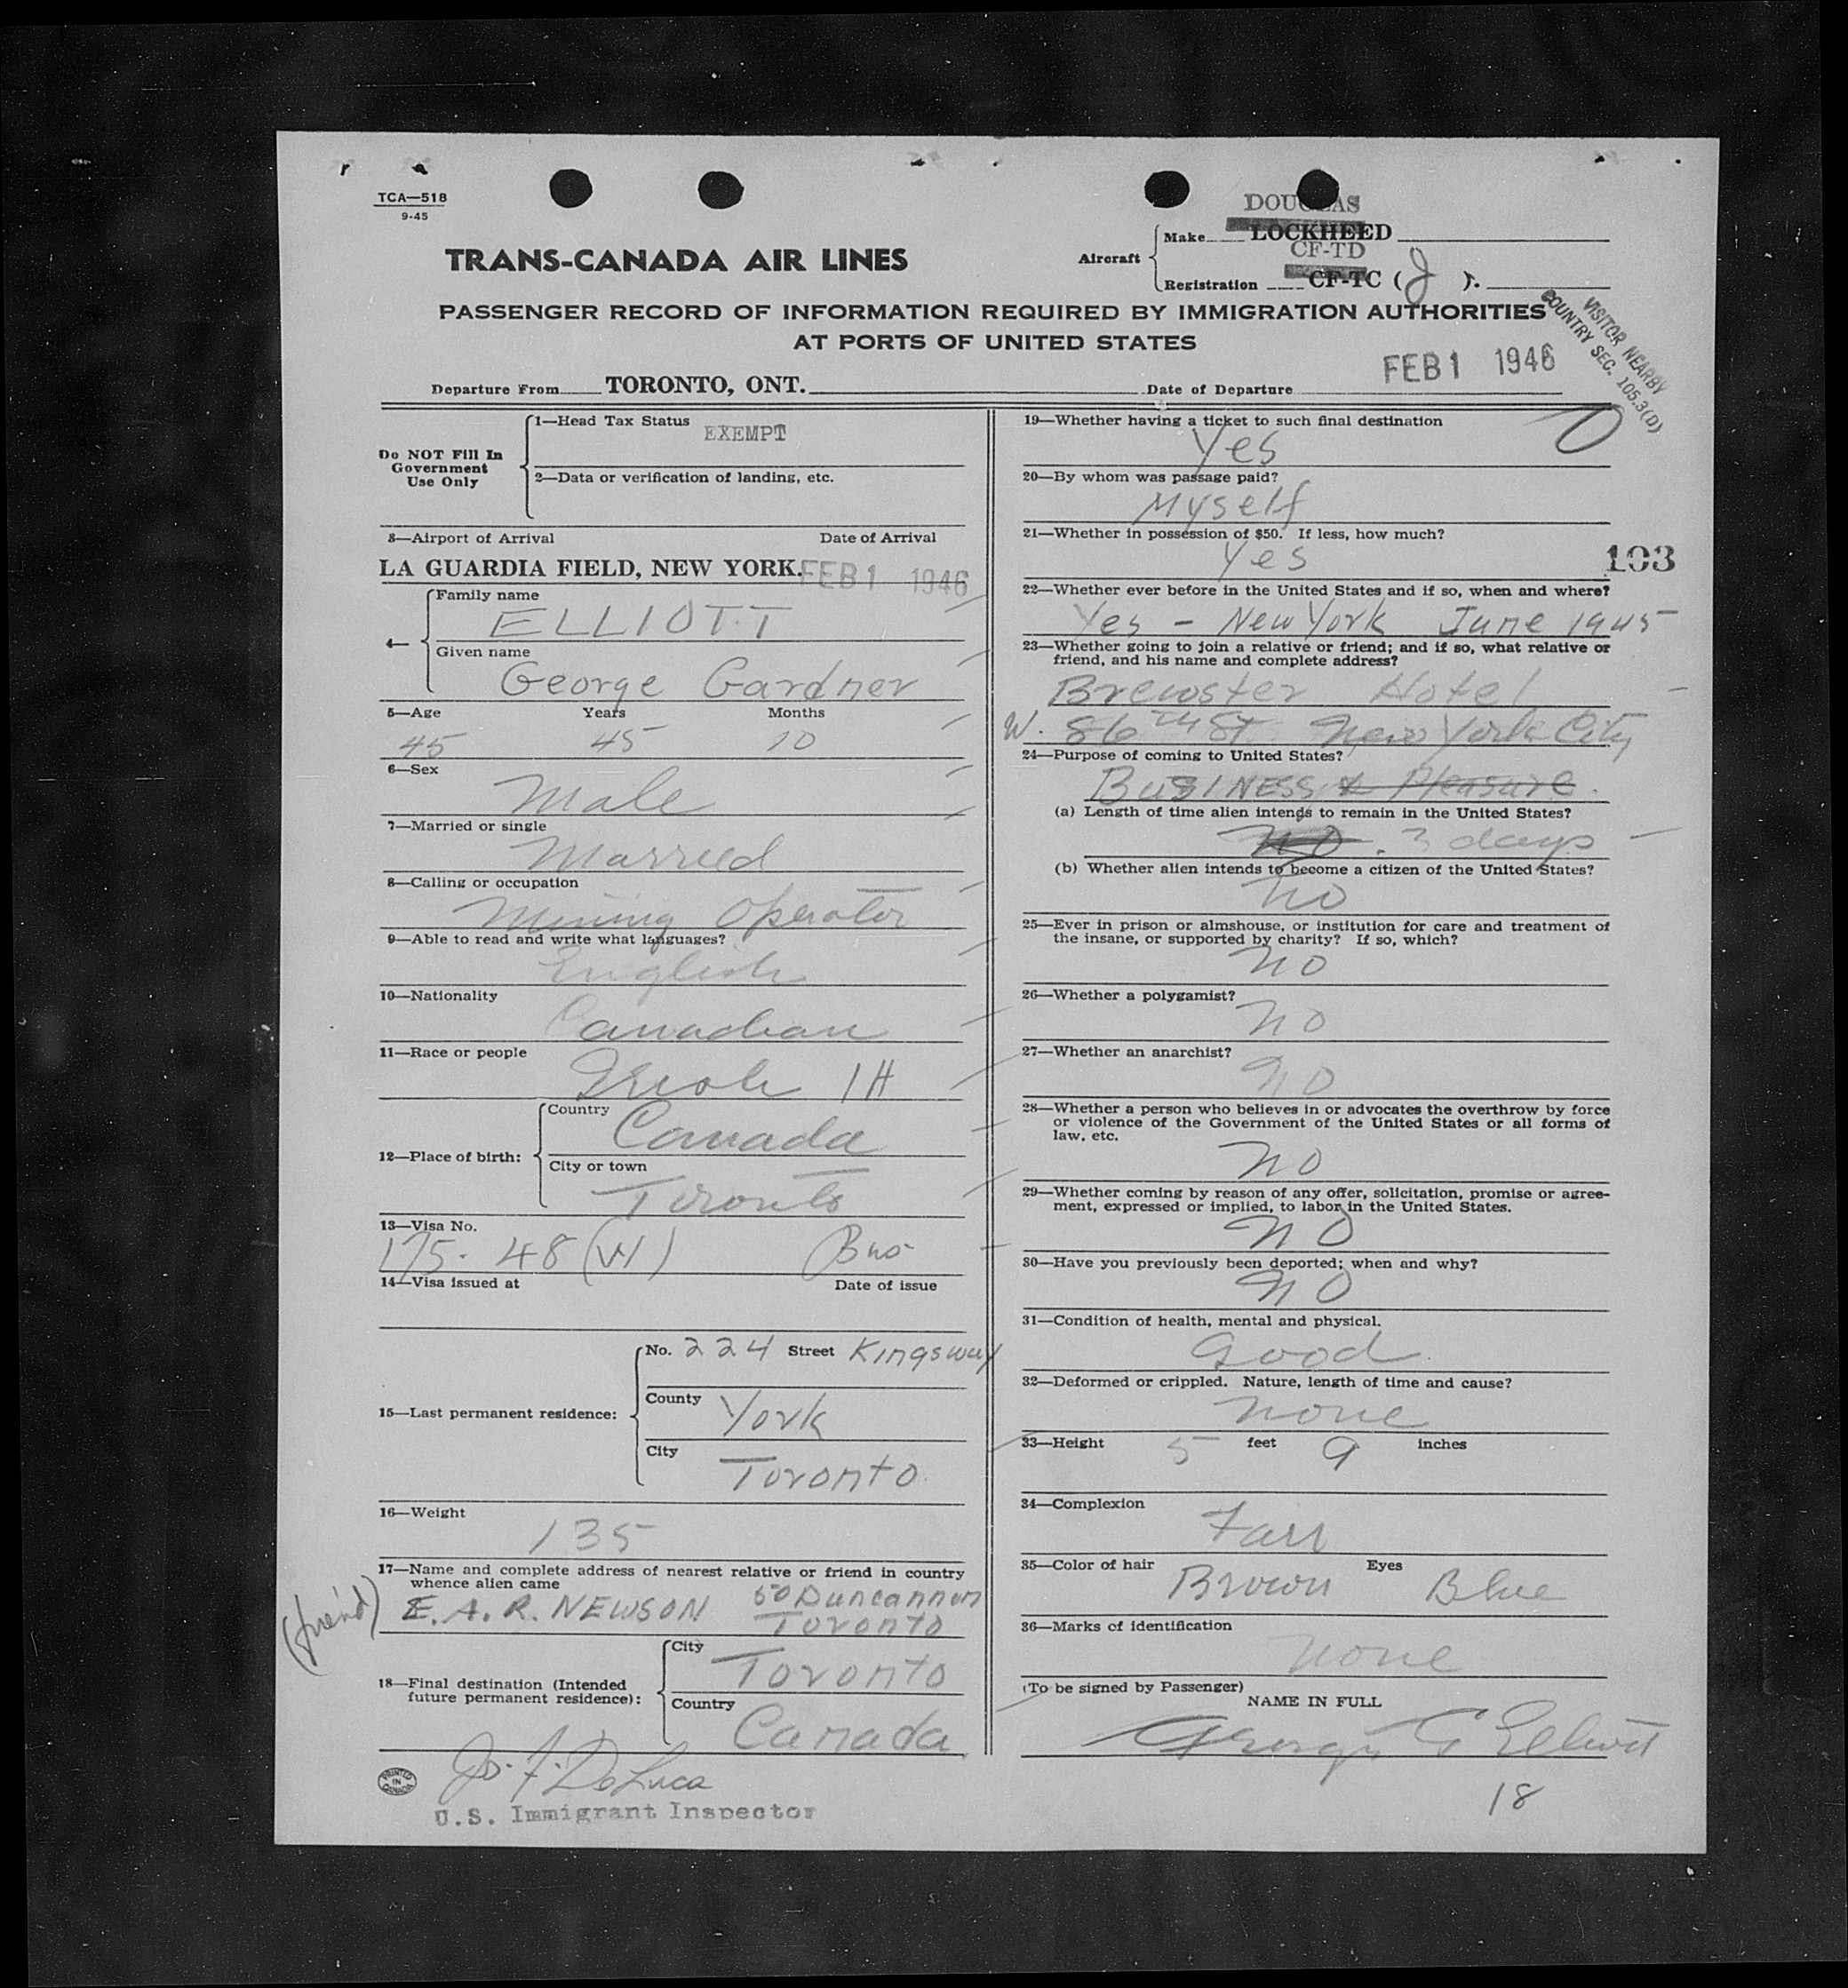 TCA—518
9-45
DOUGLAS
Aircraft
Make LOCKHEED
CF-TD
Registration CF-TC ( J ).
TRANS-CANADA AIR LINES
PASSENGER RECORD OF INFORMATION REQUIRED BY IMMIGRATION AUTHORITIES
AT PORTS OF UNITED STATES
VISITOR NEARBY
COUNTRY SEC. 105.3(D)
Departure From TORONTO, ONT. Date of Departure FEB 1 1946
Do NOT Fill In
Government
Use Only
1—Head Tax Status EXEMPT
2—Data or verification of landing, etc.
3—Airport of Arrival Date of Arrival
LA GUARDIA FIELD, NEW YORK. FEB 1 1946
4—
Family name
ELLIOTT
Given name
George Gardner
5—Age Years Months
45 45 10
6—Sex
Male
7—Married or single
Married
8—Calling or occupation
Mining Operator
9—Able to read and write what languages?
English
10—Nationality
Canadian
11—Race or people
Irish IH
12—Place of birth:
Country
Canada
City or town
Toronto
13—Visa No.
175. 48 (W) Bus
14—Visa issued at Date of issue
15—Last permanent residence:
No. 224 Street Kingsway
County
York
City
Toronto.
16—Weight
135
17—Name and complete address of nearest relative or friend in country
whence alien came
(friend) E. A. R. NEWSON 50 Duncannon
Toronto
18—Final destination (Intended
future permanent residence):
City
Toronto
Country
Canada
Jos. F. DeLuca
U.S. Immigrant Inspector
PRINTED
IN
CANADA
19—Whether having a ticket to such final destination
Yes
20—By whom was passage paid?
Myself
21—Whether in possession of $50. If less, how much?
Yes
103
22—Whether ever before in the United States and if so, when and where?
Yes - New York June 1945
23—Whether going to join a relative or friend; and if so, what relative or
friend, and his name and complete address?
Brewster Hotel
W. 86 TH St. New York City
24—Purpose of coming to United States?
BUSINESS & Pleasure.
(a) Length of time alien intends to remain in the United States?
no. 3 days
(b) Whether alien intends to become a citizen of the United States?
no
25—Ever in prison or almshouse, or institution for care and treatment of
the insane, or supported by charity? If so, which?
no
26—Whether a polygamist?
no
27—Whether an anarchist?
no
28—Whether a person who believes in or advocates the overthrow by force
or violence of the Government of the United States or all forms of
law, etc.
no
29—Whether coming by reason of any offer, solicitation, promise or agree-
ment, expressed or implied, to labor in the United States.
no
30—Have you previously been deported; when and why?
no
31—Condition of health, mental and physical.
Good
32—Deformed or crippled. Nature, length of time and cause?
none
33—Height 5 feet 9 inches
34—Complexion
Fair
35—Color of hair Brown Eyes Blue
36—Marks of identification
none
(To be signed by Passenger)
NAME IN FULL
George G Elliott
18